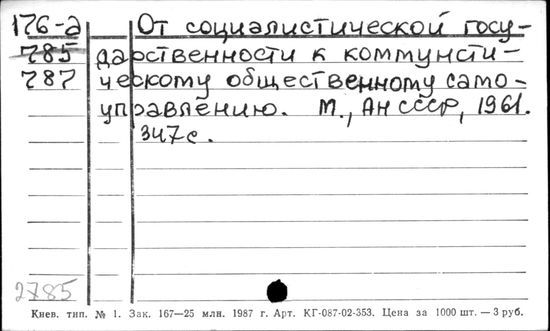 176-а От социалистической госу-
785 дарственности к коммунсти-
787 ческому общественному само-
управлению. М., АН СССР, 1961.
347с.
2785
Киев. тип. № 1. Зак. 167—25 млн. 1987 г. Арт. КГ-087-02-353. Цена за 1000 шт. — 3 руб.